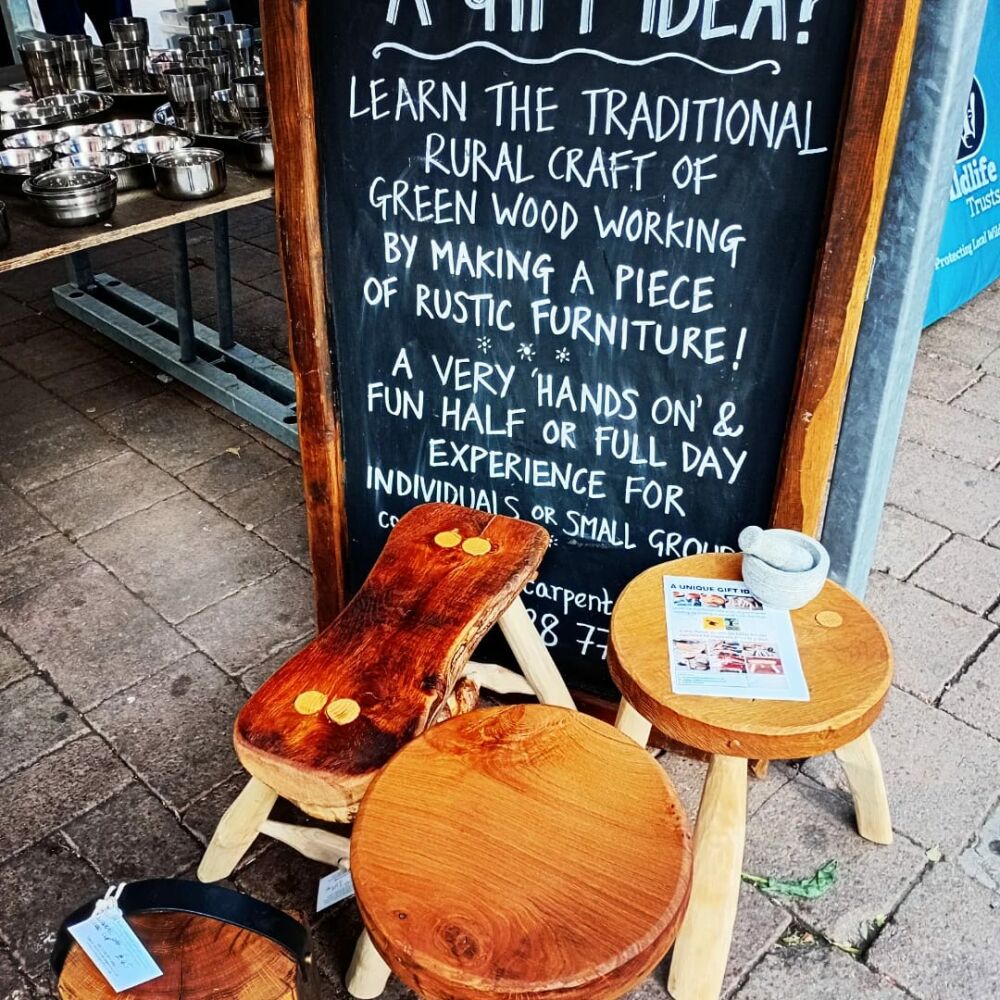 A GIFT IDEA?
LEARN THE TRADITIONAL
RURAL CRAFT OF
GREEN WOOD WORKING
BY MAKING A PIECE
OF RUSTIC FURNITURE!
A VERY 'HANDS ON' &
FUN HALF OR FULL DAY
EXPERIENCE FOR
INDIVIDUALS OR SMALL GROUP
carpent
8 77
A UNIQUE GIFT ID
ildlife
Trusts
Protecting Local Wil